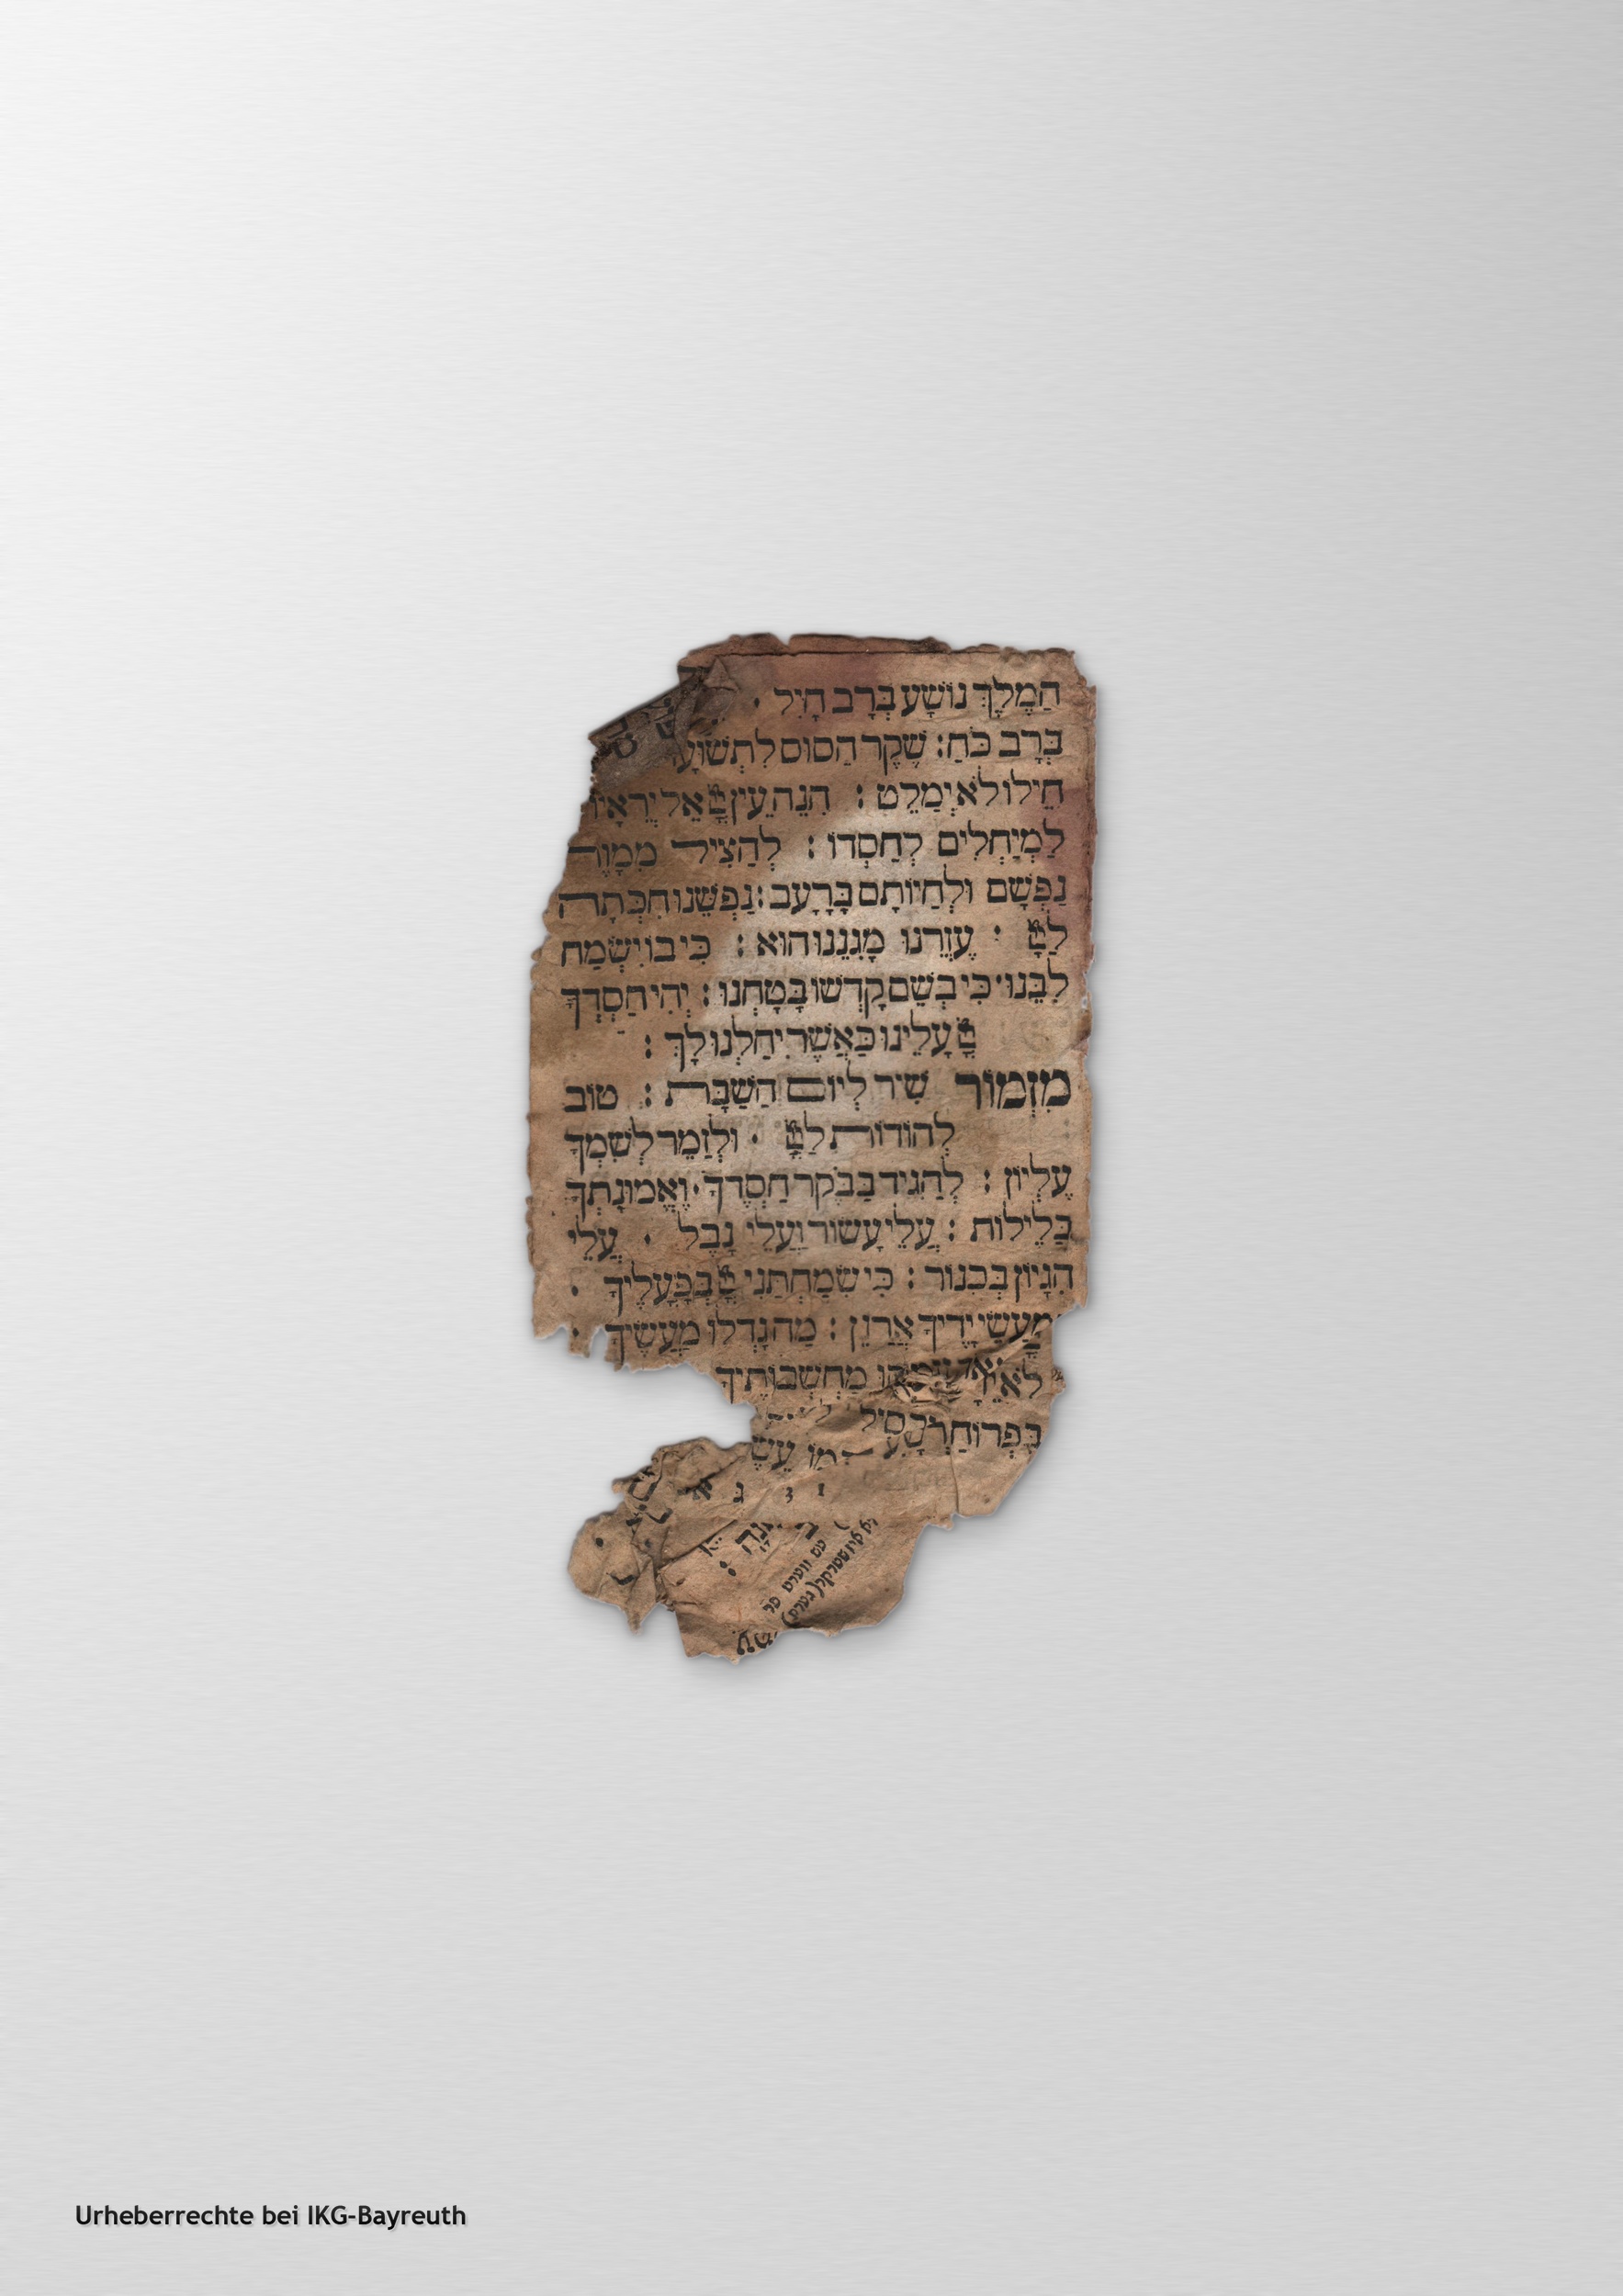 הַמֶּלֶךְ נוֹשָׁע בְּרָב חָיִל ·
בְּרָב כֹּחַ: שֶׁקֶר הַסּוּס לִתְשׁוּעָ
חֵילוֹ לֹא יְמַלֵּט : הִנֵּה עֵין יְיָ אֶל יְרֵאָיו
לַמְיַחֲלִים לְחַסְדּוֹ : לְהַצִּיל מִמָּוֶת
נַפְשָׁם וּלְחַיּוֹתָם בָּרָעָב : נַפְשֵׁנוּ חִכְּתָה
לַיְיָ · עֶזְרֵנוּ מָגִנֵּנוּ הוּא : כִּי בוֹ יִשְׂמַח
לִבֵּנוּ · כִּי בְשֵׁם קָדְשׁוֹ בָטָחְנוּ : יְהִי חַסְדְּךָ
יְיָ עָלֵינוּ כַּאֲשֶׁר יִחַלְנוּ לָךְ :
מִזְמוֹר שִׁיר לְיוֹם הַשַּׁבָּת : טוֹב
לְהוֹדוֹת לַיְיָ · וּלְזַמֵּר לְשִׁמְךָ
עֶלְיוֹן : לְהַגִּיד בַּבֹּקֶר חַסְדֶּךָ · וֶאֱמוּנָתְךָ
בַּלֵּילוֹת : עֲלֵי עָשׂוֹר וַעֲלֵי נָבֶל · עֲלֵי
הִגָּיוֹן בְּכִנּוֹר : כִּי שִׂמַּחְתַּנִי יְיָ בְּפָעֳלֶיךָ ·
מַעֲשֵׂי יָדֶיךָ אֲרַנֵּן : מַה גָּדְלוּ מַעֲשֶׂיךָ ·
מַחְשְׁבוֹתֶיךָ
בִּפְרוֹחַ
עם ווערט
Urheberrechte bei IKG-Bayreuth